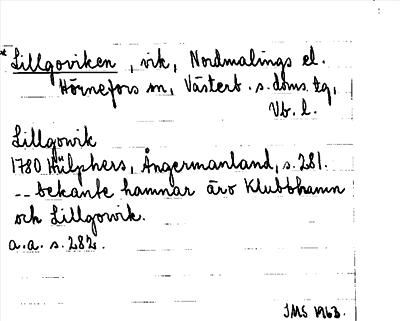 *Lillgoviken, vik, Nordmalings el.
Hörnefors sn, Västerb. s. doms. tg,
Vb. l.
Lillgowik
1780 Hülphers, Ångermanland, s. 281.
-- bekante hamnar äro Klubbhamn
och Lillgowik.
a.a. s. 282.
JMS 1963.